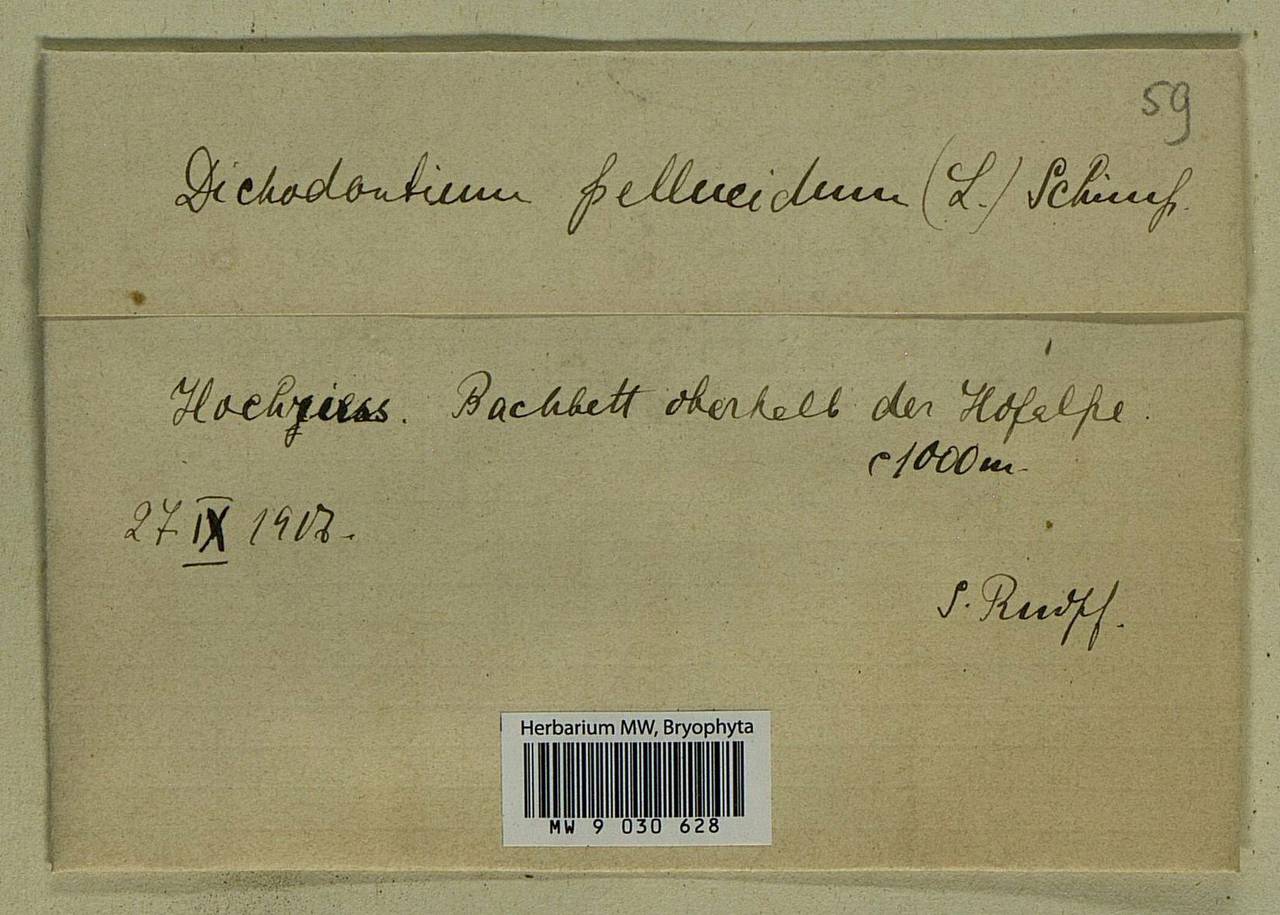 59
Dichodontium pellucidum (L.) Schimp.
Hochgiess. Bachbett oberhalb der Hofalpe.
c 1000 m.
27 IX 1917.
S.
Herbarium MW, Bryophyta
MW 9 030 628